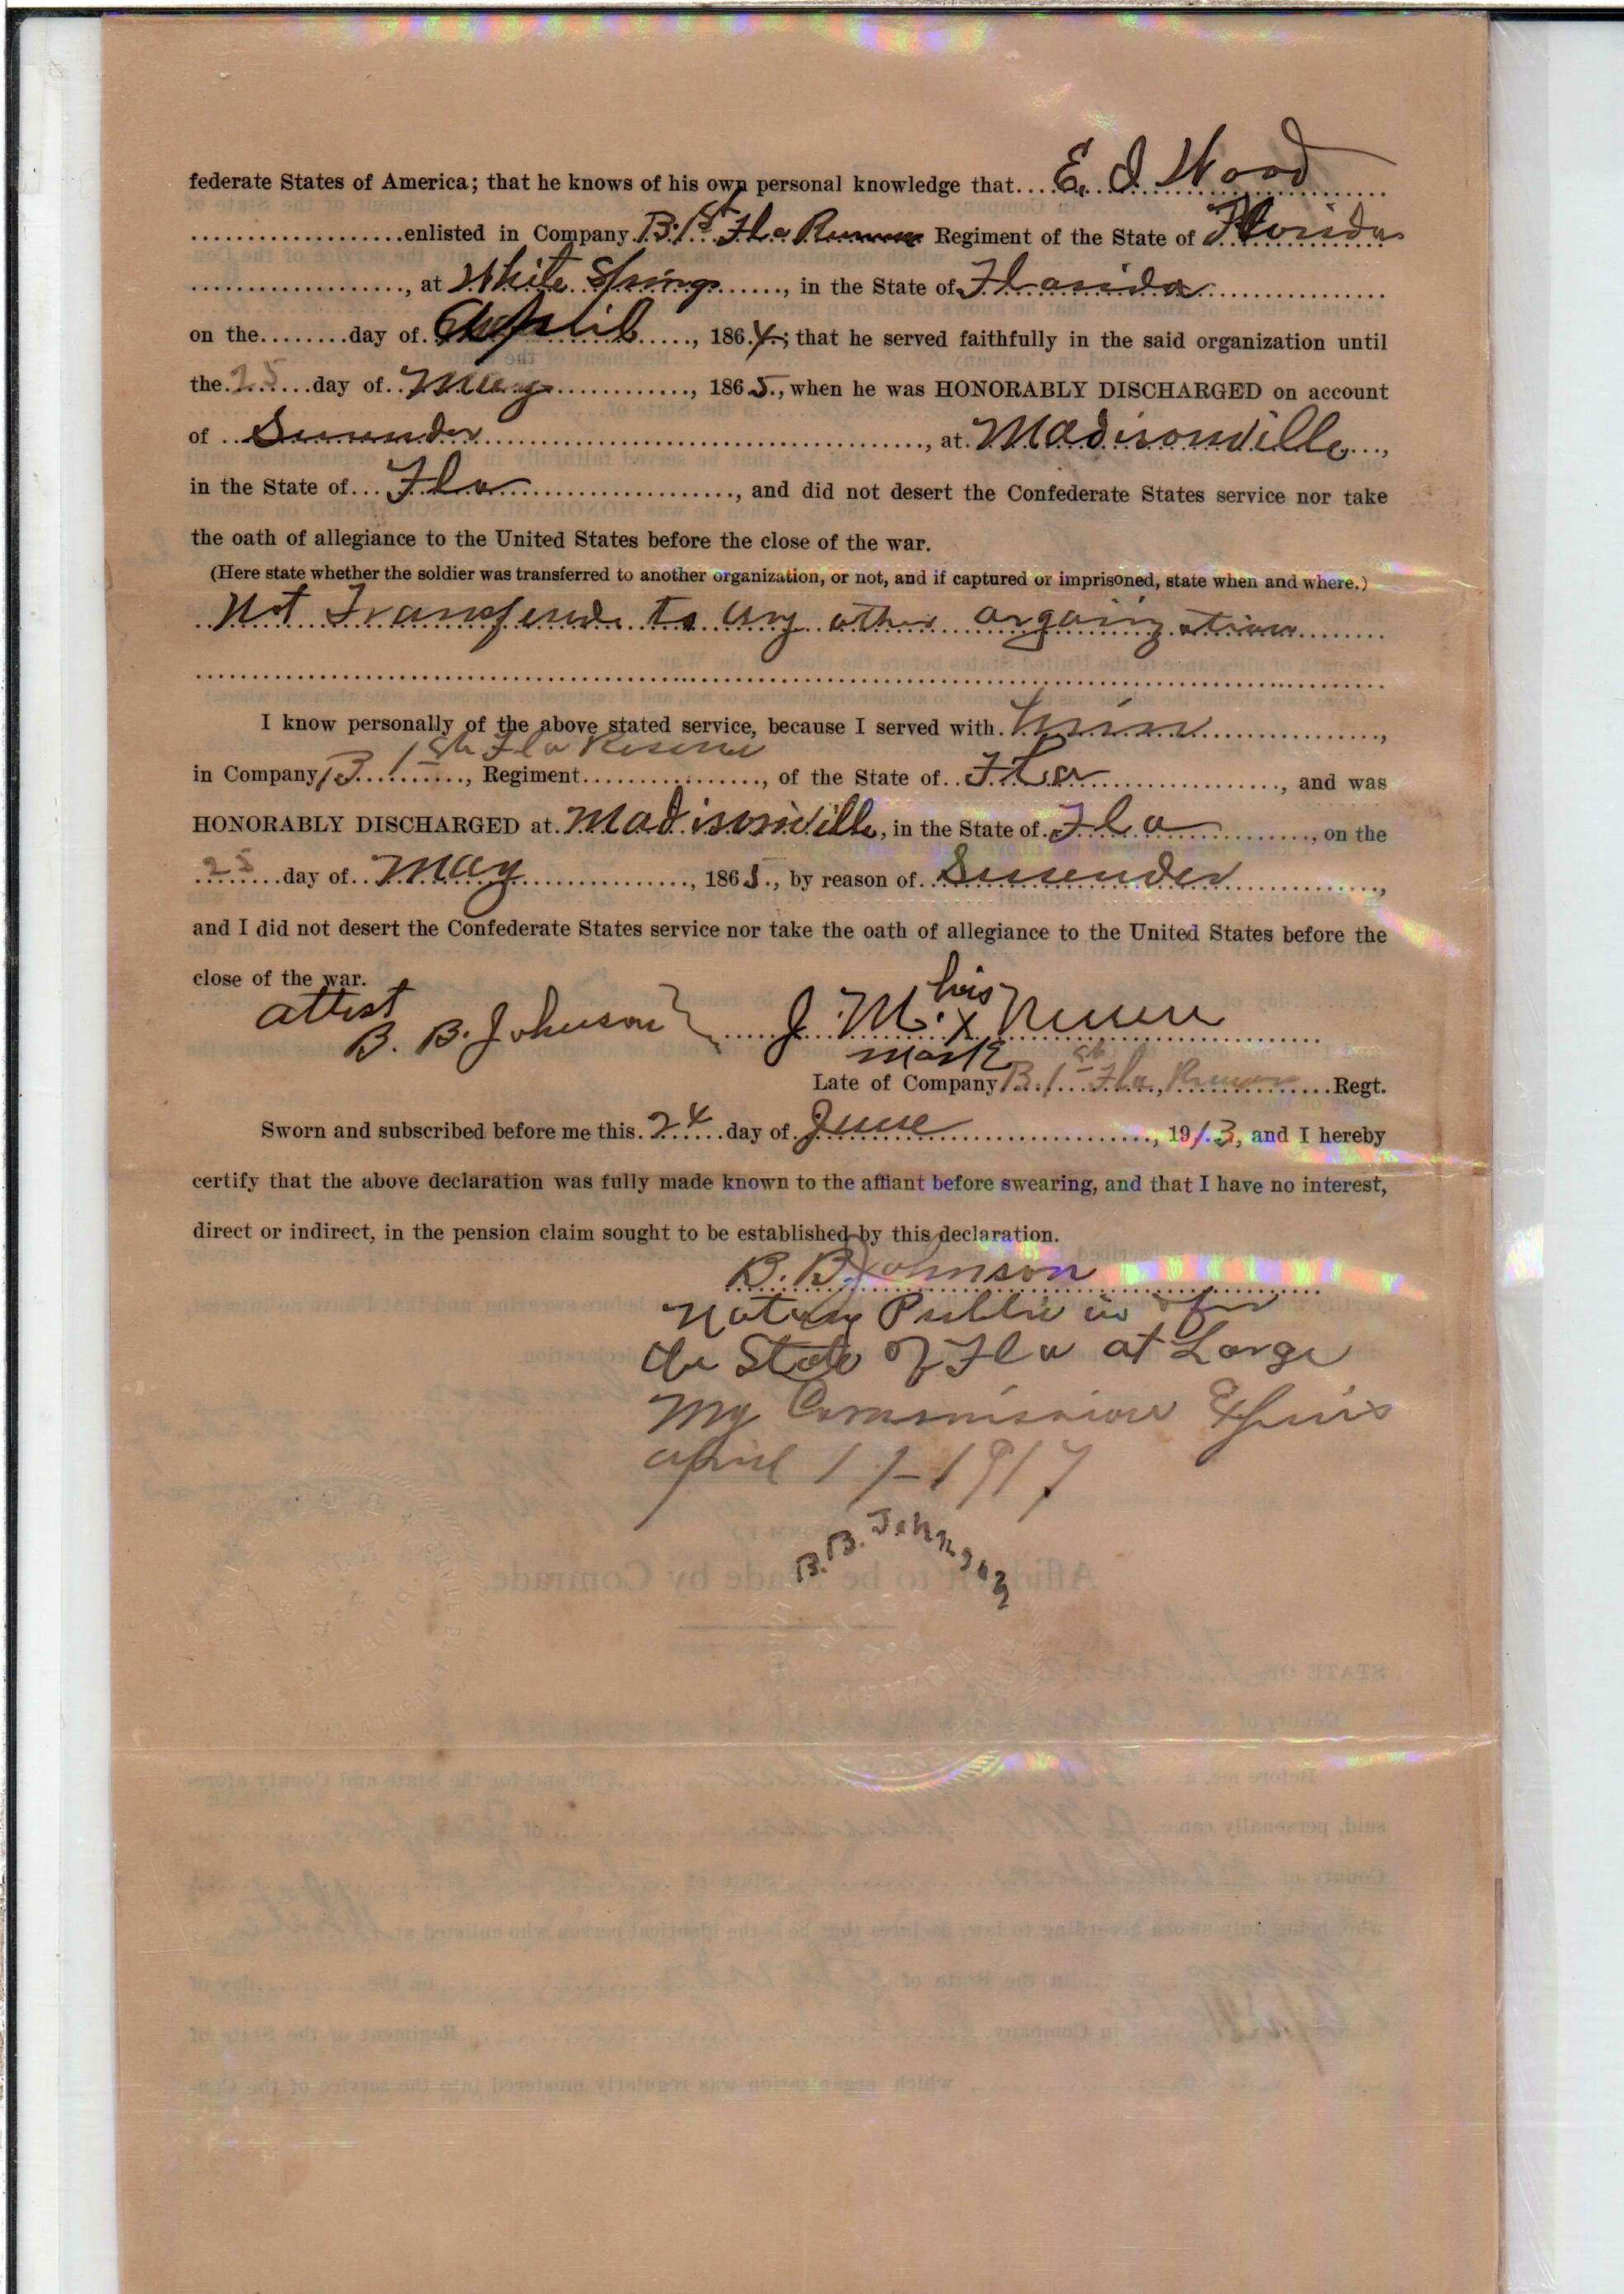 federate States of America; that he knows of his own personal knowledge that....E. I. Wood
enlisted in Company B. 1st Fla Reserve Regiment of the State of Florida
, at White Springs, in the State of Florida
on the........day of April, 1864; that he served faithfully in the said organization until
the 25 day of May, 1865, when he was HONORABLY DISCHARGED on account
of Surrender, at Madisonville,
in the State of Fla, and did not desert the Confederate States service nor take
the oath of allegiance to the United States before the close of the war.
(Here state whether the soldier was transferred to another organization, or not, and if captured or imprisoned, state when and where.)
Not Transferred to any other organization
I know personally of the above stated service, because I served with him,
in Company B 1st Fla Reserve, Regiment, of the State of Fla, and was
HONORABLY DISCHARGED at Madisonville, in the State of Fla, on the
25 day of May, 1865, by reason of Surrender,
and I did not desert the Confederate States service nor take the oath of allegiance to the United States before the
close of the war.
attest
B. B. Johnson } J. M. his x mark
Late of Company B. 1st Fla, Reserve Regt.
Sworn and subscribed before me this 24 day of June, 1913, and I hereby
certify that the above declaration was fully made known to the affiant before swearing, and that I have no interest,
direct or indirect, in the pension claim sought to be established by this declaration.
B. B. Johnson
Notary Public in & for
the State of Fla at Large
My Commission Expires
april 17-1917
B. B. Johnson